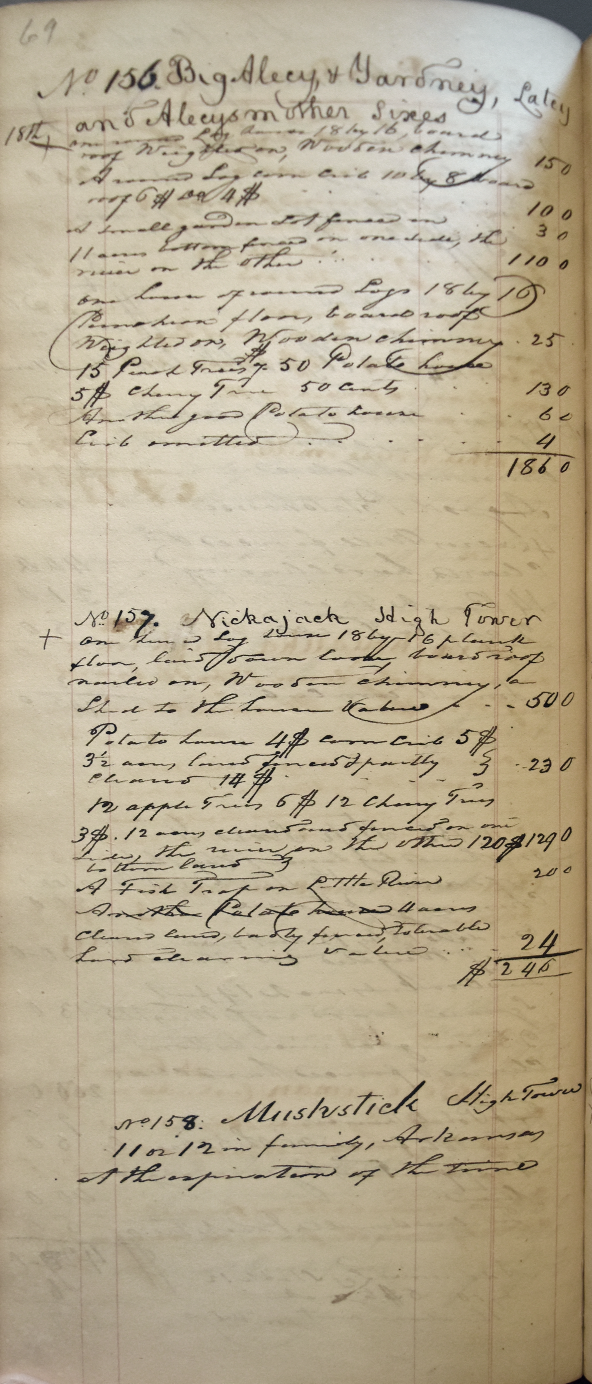 69
No 156. Big Alecy, & Yardney, Latey
and Alecys mother Sixes
18th + one round Log house 18 by 16, board
roof Weighted on, Wooden Chimney 150
A round Log corn Crib 10 by 8 board
roof 6$ 4$ 100
A small garden Lot fenced in 30
11 acres bottom fenced on one side, the
river on the other 1100
one house of round Logs 18 by 16
Puncheon floor, board roof
Weighted on, Wooden Chimney 25
15 Peach Trees 7$ 50 Potato house
5$ Cherry Tree 50 Cents 130
Another good Potato house 60
Crib omitted 4
1860
No 157. Nickajack High Tower
+ one Log house 18 by 16 plank
floor, laid down board roof
nailed on, Wooden Chimney, a
Shed to the house Value 500
Potato house 4$ corn Crib 5$
3½ acres land fenced & partly
cleared 14$ 230
12 apple Trees 6$ 12 Cherry Trees
3$. 12 acres cleared and fenced on one
side, the river on the other 120$ 1290
bottom land
A Fish Trap on Little River 200
Another Potato house 4 acres
cleared land, badly fenced, tolerable
hard clearing Value 24
$ 246
No 158. Muskstick High Tower
11 or 12 in family, Arkansas
at the expiration of the time